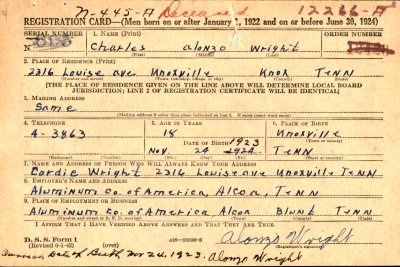 N-445-A Deceased 12266-A
REGISTRATION CARD—(Men born on or after January 1, 1922 and on or before June 30, 1924)
SERIAL NUMBER 1. NAME (Print) ORDER NUMBER
Charles Alonzo Wright
(First) (Middle) (Last)
2. PLACE OF RESIDENCE (Print)
2316 Louise ave Knoxville Knox Tenn
(Number and street) (Town, township, village, or city) (County) (State)
[THE PLACE OF RESIDENCE GIVEN ON THE LINE ABOVE WILL DETERMINE LOCAL BOARD
JURISDICTION; LINE 2 OF REGISTRATION CERTIFICATE WILL BE IDENTICAL]
3. MAILING ADDRESS
Same
(Mailing address if other than place indicated on line 2. If same insert word same)
4. TELEPHONE 5. AGE IN YEARS 6. PLACE OF BIRTH
4-3863 18 Knoxville
DATE OF BIRTH (Town or county)
1923
Nov 24 1924 Tenn
(Exchange) (Number) (Mo.) (Day) (Yr.) (State or country)
7. NAME AND ADDRESS OF PERSON WHO WILL ALWAYS KNOW YOUR ADDRESS
Cordie Wright 2316 Louise ave Knoxville Tenn
8. EMPLOYER'S NAME AND ADDRESS
Aluminum Co. of America, Alcoa, Tenn
9. PLACE OF EMPLOYMENT OR BUSINESS
Aluminum Co. of America Alcoa Blunt Tenn
(Number and street or R. F. D. number) (Town) (County) (State)
I AFFIRM THAT I HAVE VERIFIED ABOVE ANSWERS AND THAT THEY ARE TRUE.
D. S. S. Form 1
(Revised 6-1-42) (over) Alonzo Wright
(Registrant's signature)
Birth Nov 24, 1923. Alonzo Wright